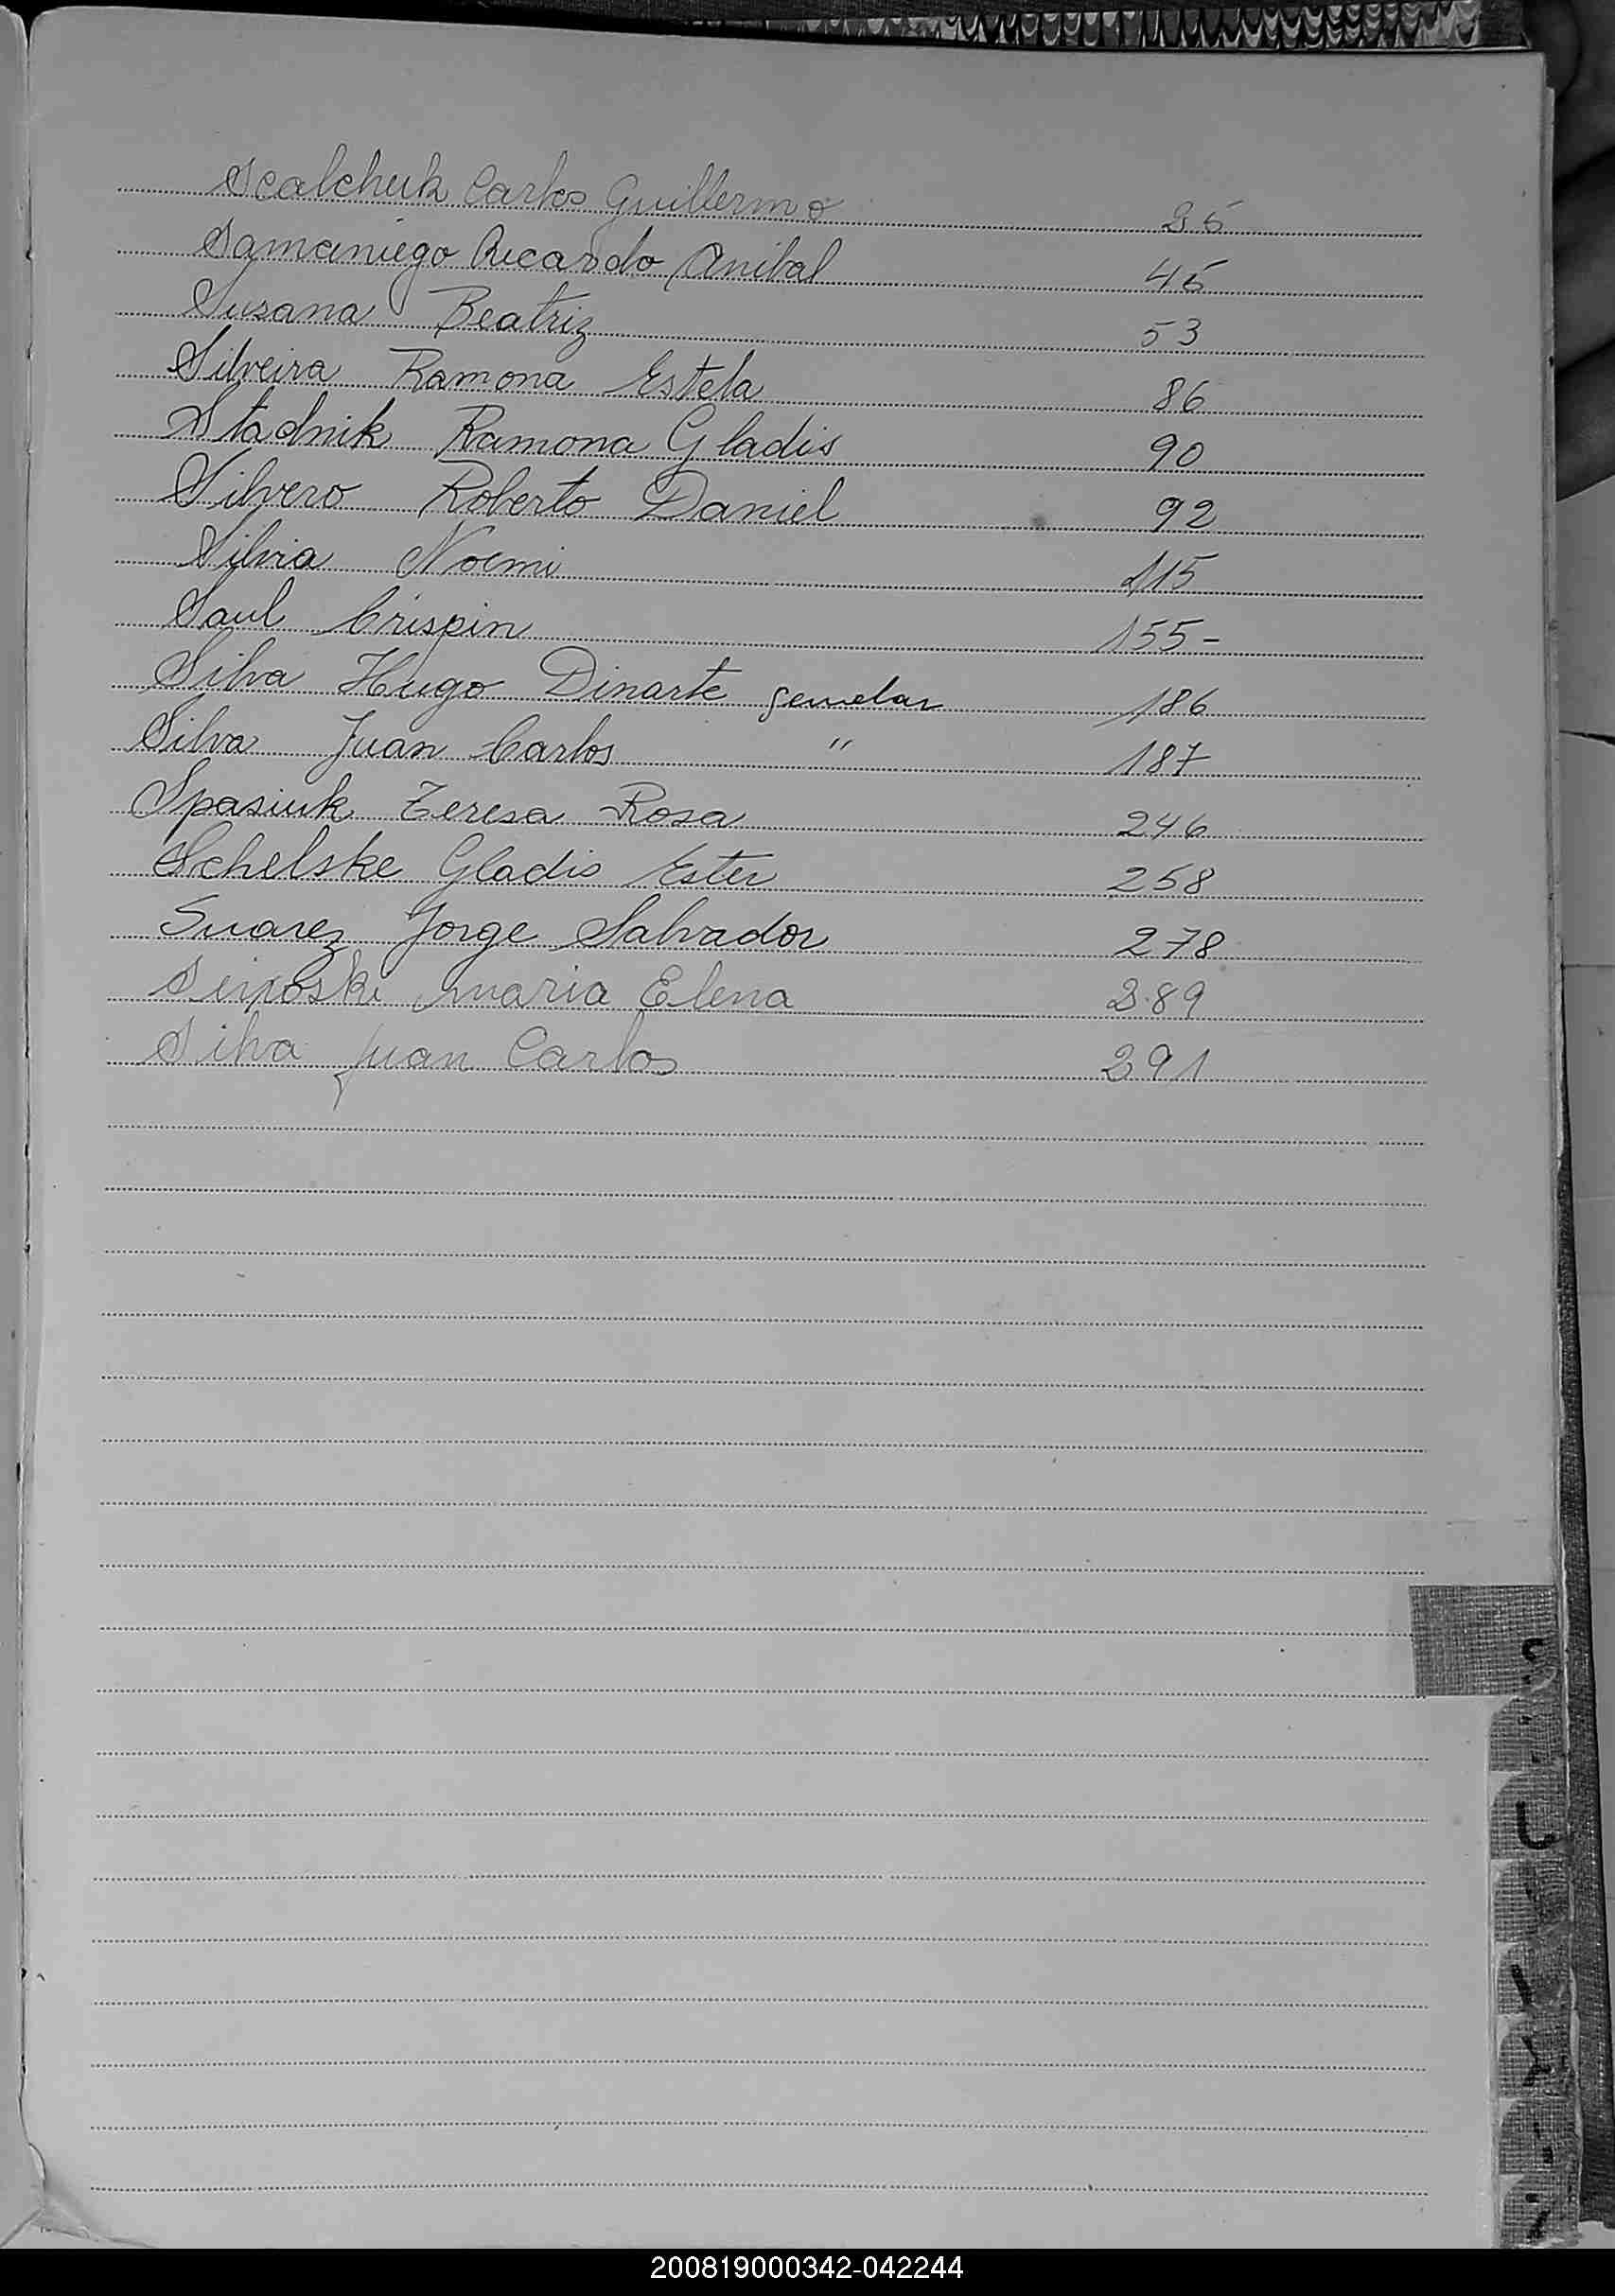 Scalchuk Carlos Guillermo 25
Samaniego Ricardo Anibal 45
Susana Beatriz 53
Silveira Ramona Estela 86
Stadnik Ramona Gladis 90
Silvero Roberto Daniel 92
Silvia Noemi 115
Saul Crispin 155-
Silva Hugo Dinarte gemelar 186
Silva Juan Carlos " 187
Spasiuk Teresa Rosa 246
Schelske Gladis Ester 258
Suarez Jorge Salvador 278
maria Elena 289
Silva Juan Carlos 291
200819000342-042244